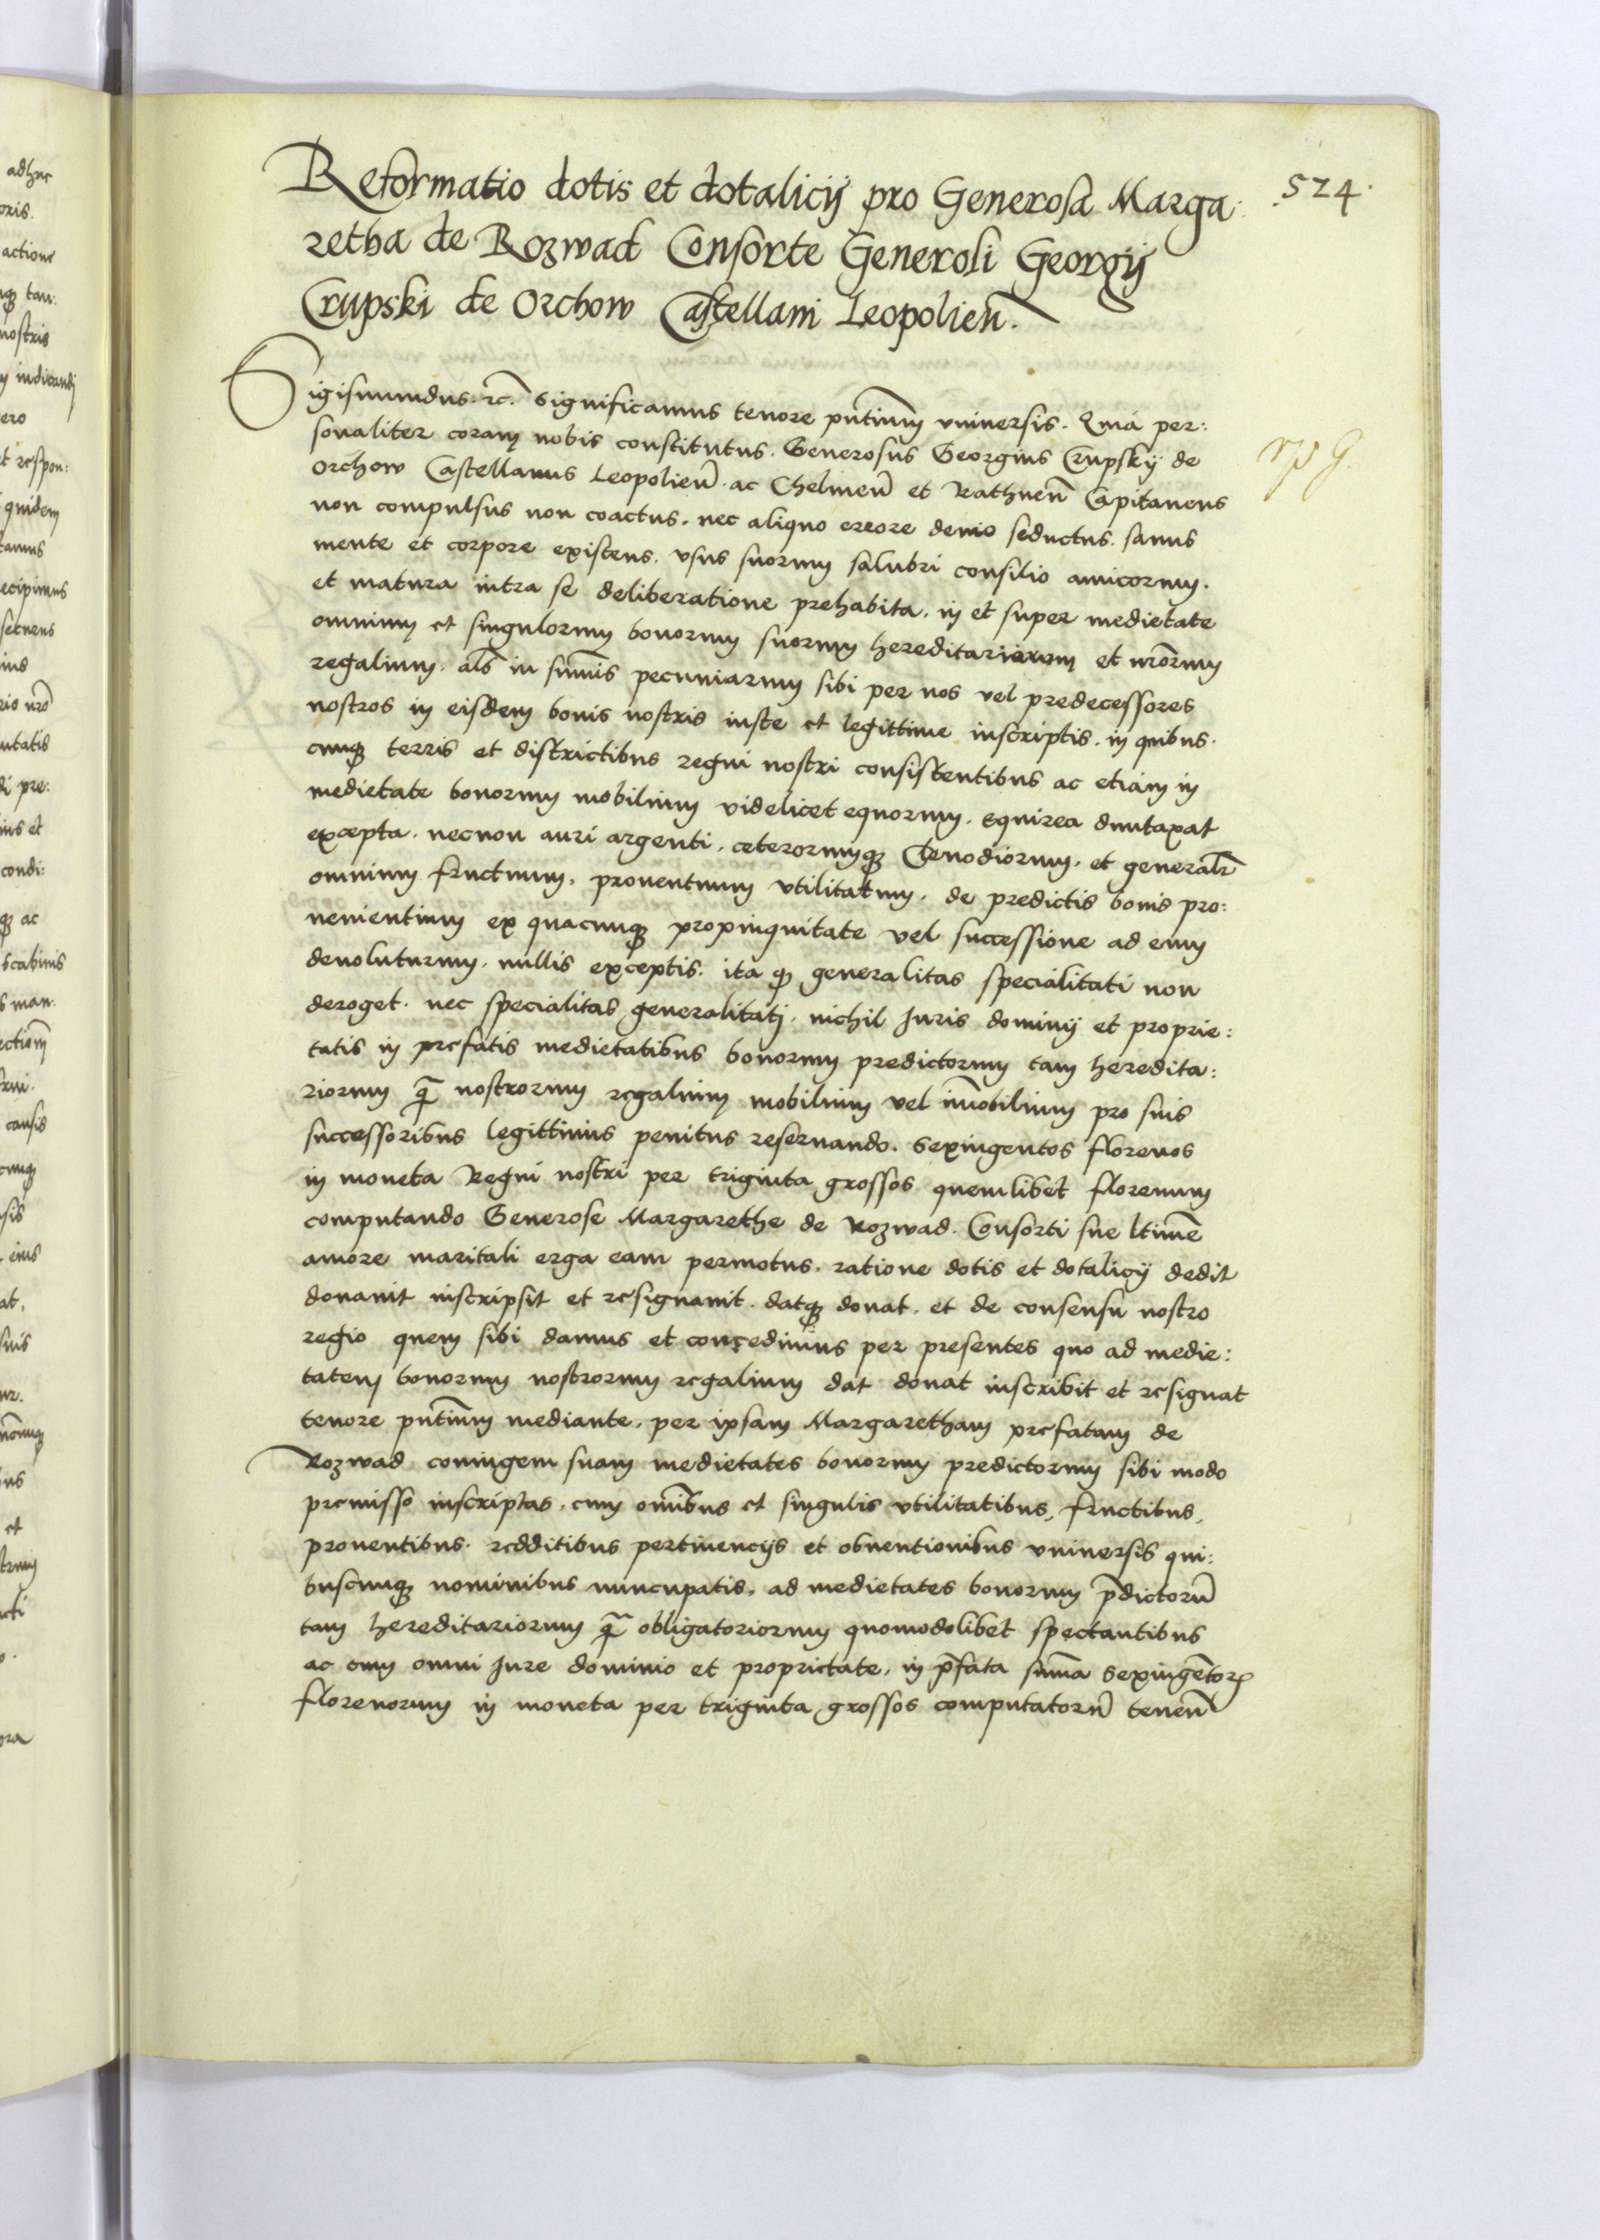 Reformatio dotis et dotalicij pro Generosa Marga:
retha de Rozwad Consorte Generosi Georgij
Crupski de Orchow Castellani Leopolien̄.
524.
Sigismundus. rc̄. Significamus tenore pn̄tium vniuersis. Quia per:
sonaliter coram nobis constitutus. Generosus Georgius Crupsky de
Orchow Castellanus Leopolien̄. ac Chelmen̄ et Rathnen̄ Capitaneus
non compulsus non coactus. nec aliquo errore deuio seductus. sanus
mente et corpore existens. vsus suorum salubri consilio amicorum.
et matura intra se deliberatione prehabita. in et super medietate
omnium et singulorum bonorum suorum hereditariorum et nr̄orum
regalium. als̄ in sum̄is pecuniarum sibi per nos vel predecessores
nostros in eisdem bonis nostris iuste et legittime inscriptis. in quibus.
cunqꝫ terris et districtibus regni nostri consistentibus ac etiam in
medietate bonorum mobilium videlicet equorum. equirea duntaxat
excepta. necnon auri argenti. ceterorumqꝫ Clenodiorum. et generalr̄
omnium fructuum. prouentuum vtilitatum. de predictis bonis pro:
uenientium ex quacunqꝫ propinquitate vel successione ad eum
deuoluturum. nullis exceptis. ita qꝫ generalitas specialitati non
deroget. nec specialitas generalitati. nichil Juris dominij et proprie:
tatis in prefatis medietatibus bonorum predictorum tam heredita:
riorum q̄ nostrorum regalium mobilium vel im̄obilium pro suis
successoribus legittimis penitus reseruando. Sexingentos florenos
in moneta Regni nostri per triginta grossos quemlibet florenum
computando Generose Margarethe de Rozwad. Consorti sue ltime̅
amore maritali erga eam permotus. ratione dotis et dotalicij dedit
donauit inscripsit et resignauit. datqꝫ donat. et de consensu nostro
regio quem sibi damus et concedimus per presentes quo ad medie:
tatem bonorum nostrorum regalium dat donat inscribit et resignat
tenore pn̄tium mediante. per ipsam Margaretham prefatam de
Rozwad coniugem suam medietates bonorum predictorum sibi modo
premisso inscriptas. cum om̄ibus et singulis vtilitatibus, fructibus,
prouentibus. redditibus pertinencijs et obuentionibus vniuersis qui:
buscunqꝫ nominibus nuncupatis. ad medietates bonorum p̄dictorū
tam hereditariorum q̄ obligatoriorum quomodolibet spectantibus
ac cum omni Jure dominio et proprietate. in p̄fata sum̄a Sexingētorꝝ
florenorum in moneta per triginta grossos computatorū tenen̄